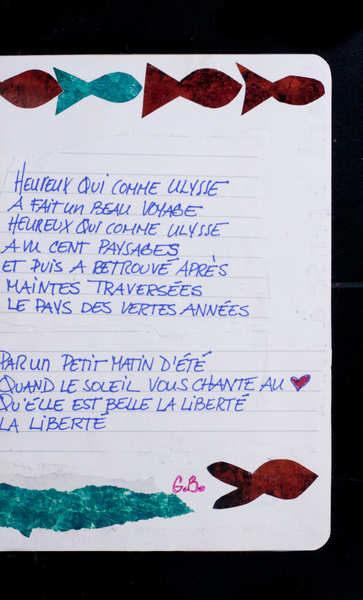 HEUREUX QUI COMME ULYSSE
A FAIT un BEAU VOYAGE
HEUREUX QUI COMME ULYSSE
A VU CENT PAYSAGES
ET PUIS A RETROUVÉ APRÈS
MAINTES TRAVERSÉES
LE PAYS DES VERTES ANNÉES
PAR un PETIT MATIN D'ÉTÉ
QUAND LE SOLEIL VOUS CHANTE AU ♥
QU'ELLE EST BELLE LA LIBERTÉ
LA LIBERTÉ
G.B.